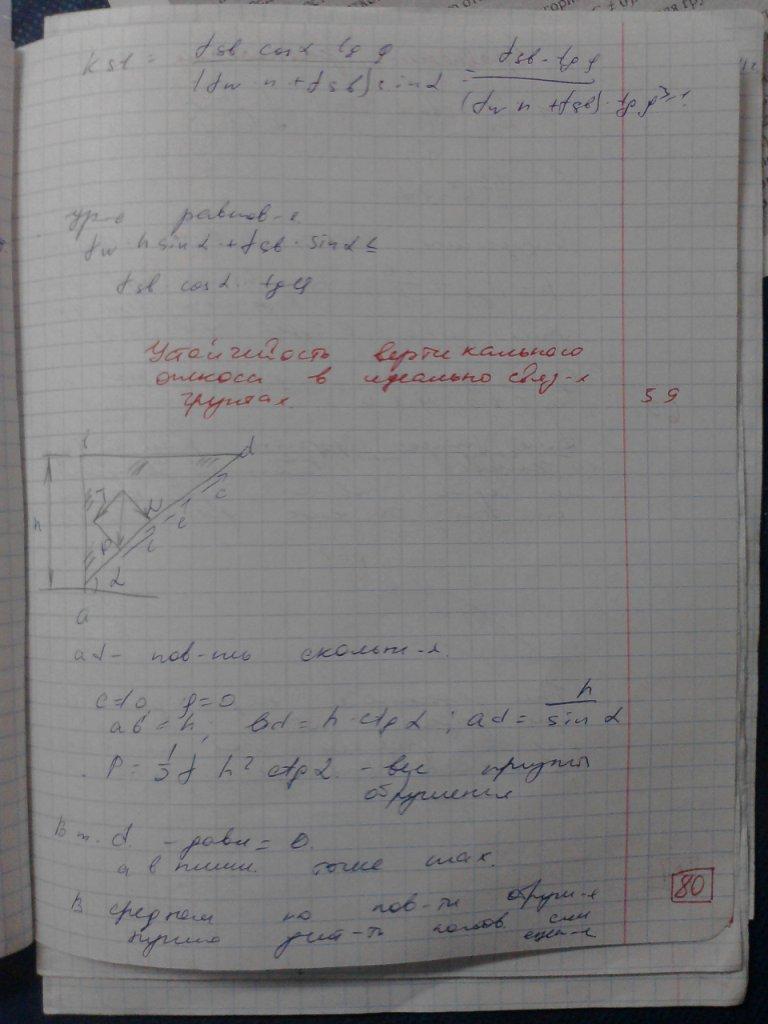 Kst = γsb · cosα · tg φ / (γw · n + γsb) sinα = γsb · tg φ / (γw n + γsb) · tg
ур-е равнов-я.
γw · n sinα + γsb · sinα ≤
γsb cosα · tgφ
Устойчивость вертикального
откоса в идеально связ-х
грунтах.
59
b d
h
T N
c
c
P c
α
a
ad – пов-ть скольж-я.
c≠0, φ=0
ab = h, bd = h · ctgα ; ad = h / sinα
P = 1/2 γ h² ctgα. – вес призмы
обрушения
В т. d – давл = 0.
а в нижн. точке max.
В среднем по пов-ти обруш-я
нужно полов. силы
80